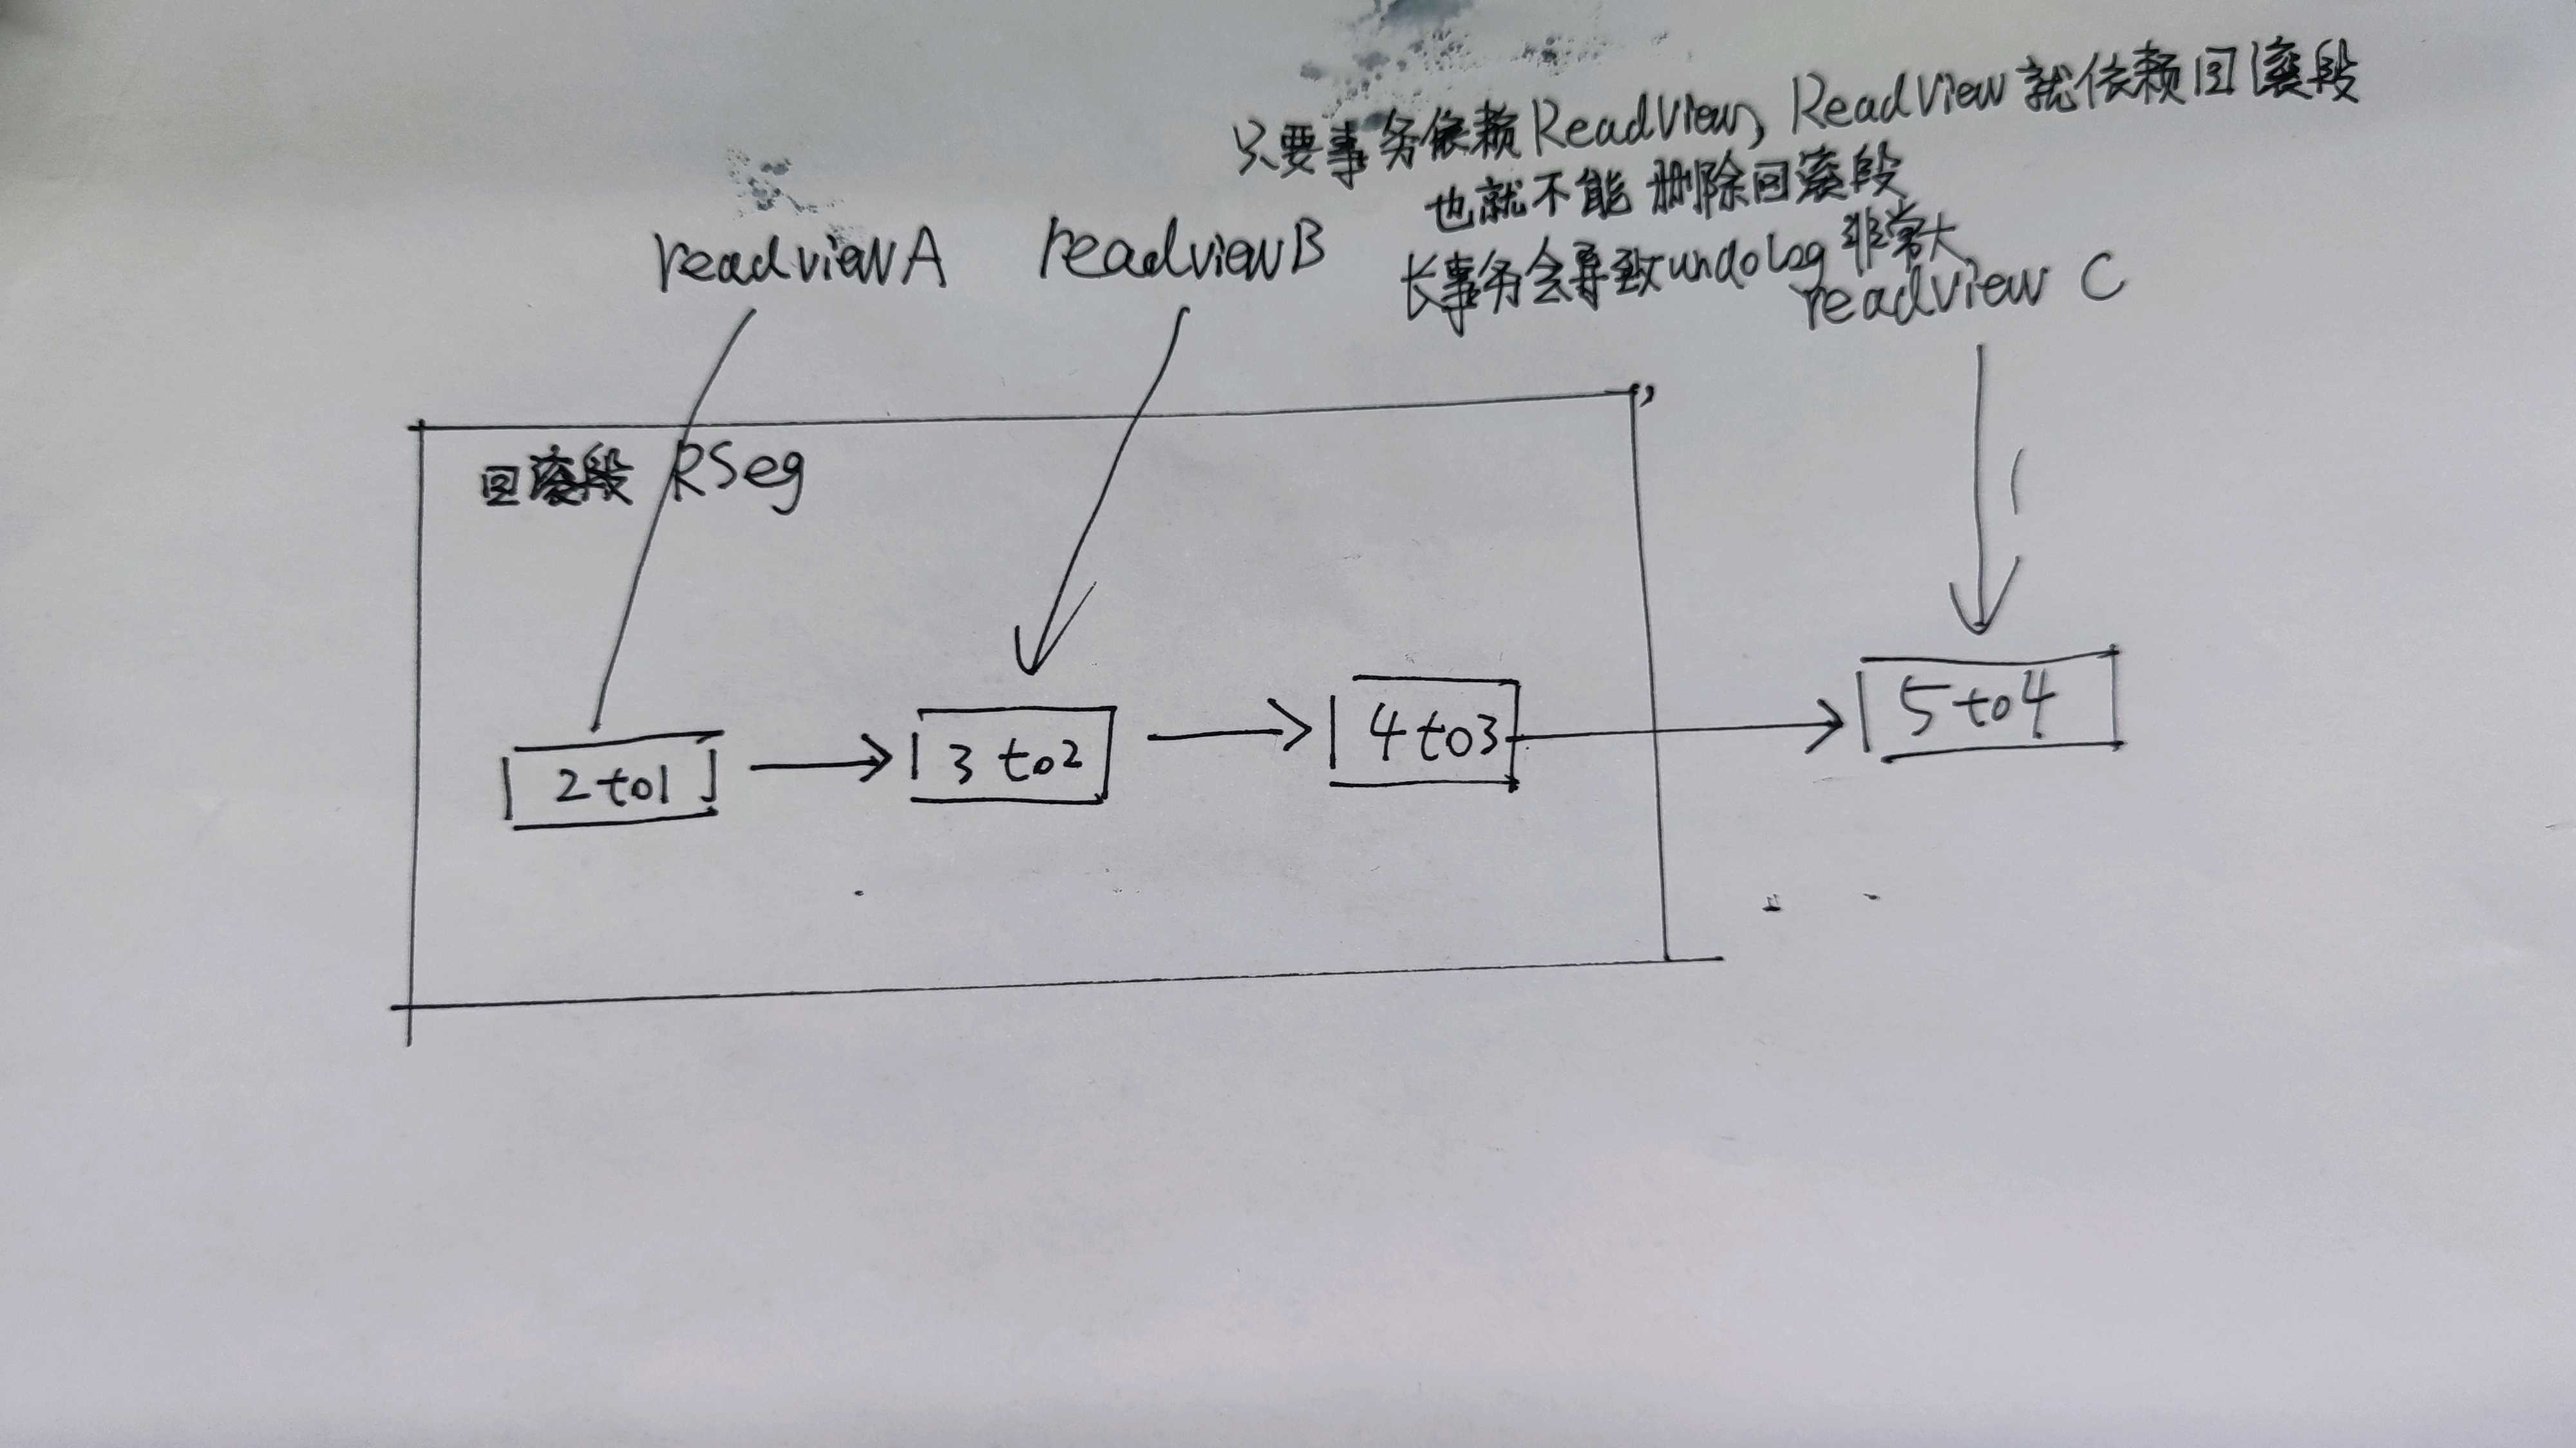 只要事务依赖ReadView, ReadView就依赖回滚段
也就不能删除回滚段
长事务会导致undolog非常大
readviewA
readviewB
readview C
回滚段 RSeg
2to1
3to2
4to3
5to4